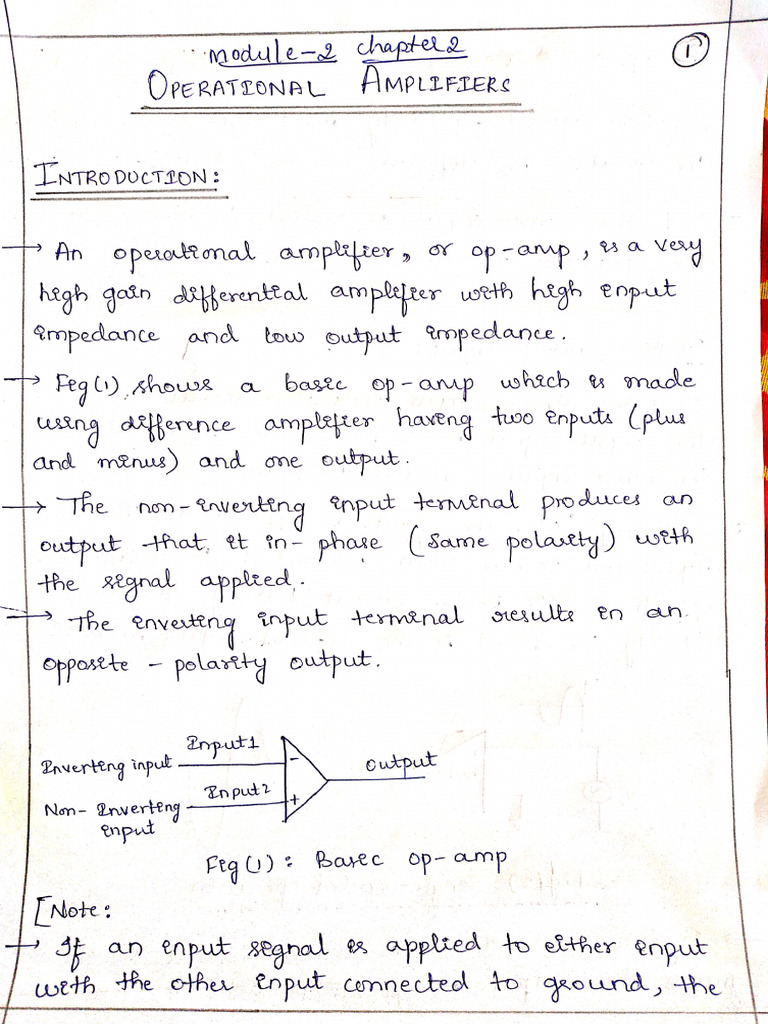 Module-2 chapter 2
1
OPERATIONAL AMPLIFIERS
INTRODUCTION:
→ An operational amplifier, or op-amp, is a very
high gain differential amplifier with high input
impedance and low output impedance.
→ Fig(1) shows a basic op-amp which is made
using difference amplifier having two inputs (plus
and minus) and one output.
→ The non-inverting input terminal produces an
output that it in-phase (same polarity) with
the signal applied.
→ The inverting input terminal results in an
opposite-polarity output.
Inverting input Input1 - output
Non-Inverting Input2 +
input
Fig(1): Basic op-amp
[Note:
→ If an input signal is applied to either input
with the other input connected to ground, the